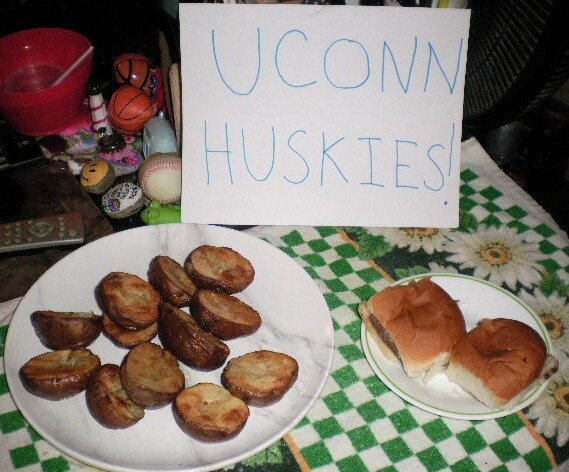 UCONN
HUSKIES!